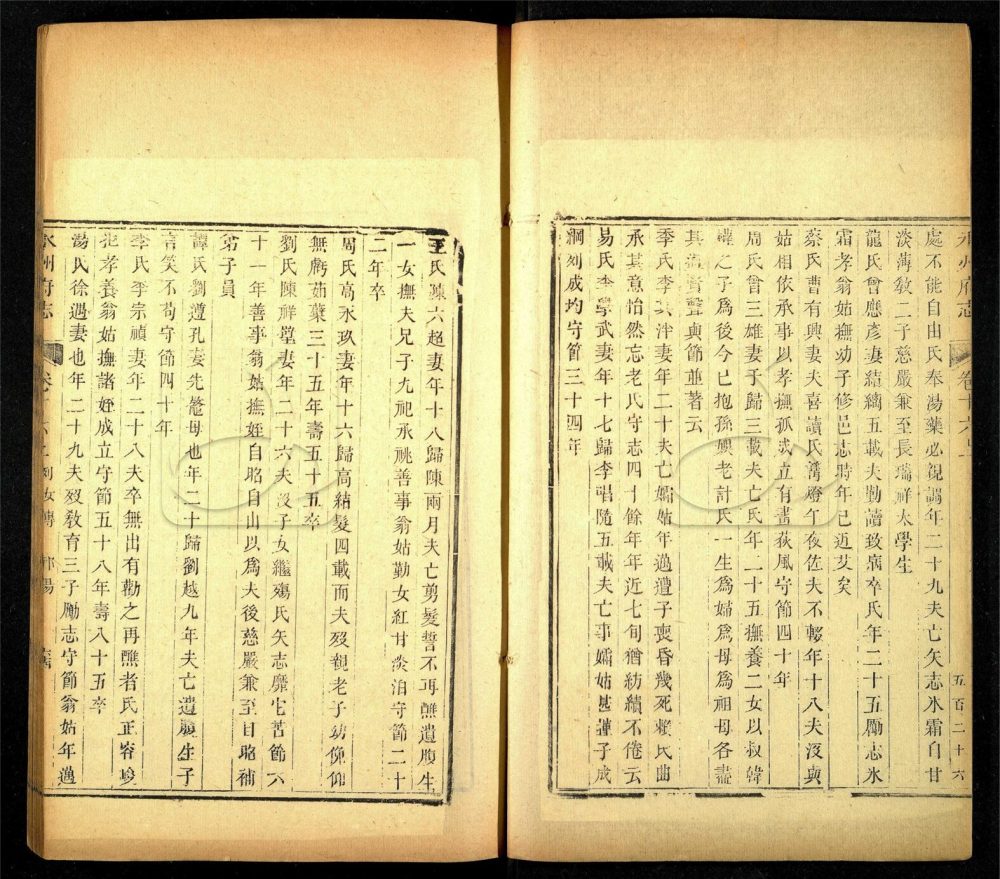 永州府志 卷十六上 五百二十六
處不能自由氏奉湯藥必視調年二十九夫亡矢志氷霜自甘
淡薄敎二子慈嚴兼至長瑞祥太學生
龍氏曾應彦妻結縭五載夫勤讀致病卒氏年二十五勵志氷
霜孝翁姑撫幼子修邑志時年已近艾矣
蔡氏曹有興妻夫喜讀氏篝燈午夜佐夫不輟年十八夫沒與
姑相依承事以孝撫孤成立有畫荻風守節四十年
周氏曾三雄妻于歸三載夫亡氏年二十五撫養二女以叔韓
緯之子爲後今已抱孫娛老計氏一生爲婦爲母爲祖母各盡
其道賢聲與節並著云
季氏李 泮妻年二十夫亡孀姑年邁遭子喪昏幾死賴氏曲
承其意怡然忘老氏守志四十餘年年近七旬猶紡績不倦云
易氏李學武妻年十七歸李唱隨五載夫亡事孀姑甚謹子成
綱列成均守節三十四年
王氏陳六超妻年十八歸陳兩月夫亡剪髮誓不再醮遺腹生
一女撫夫兄子九祀承祧善事翁姑勤女紅甘淡泊守節二十
二年卒
周氏高永玖妻年十六歸高結髮四載而夫歿親老子幼俯仰
無虧茹蘗三十五年壽五十五卒
劉氏陳祥瑩妻年二十六夫沒子女繼殤氏矢志靡它苦節六
十一年善事翁姑撫姪自昭自山以爲夫後慈嚴兼至自昭補
弟子員
譚氏劉遵孔妻先 母也年二十歸劉越九年夫亡遺腹生子
言笑不苟守節四十年
李氏李宗禎妻年二十八夫卒無出有勸之再醮者氏正容峻
拒孝養翁姑撫諸姪成立守節五十八年壽八十五卒
湯氏徐遇妻也年二十九夫歿敎育三子勵志守節翁姑年邁
永州府志 卷十六上 列女傳 祁陽